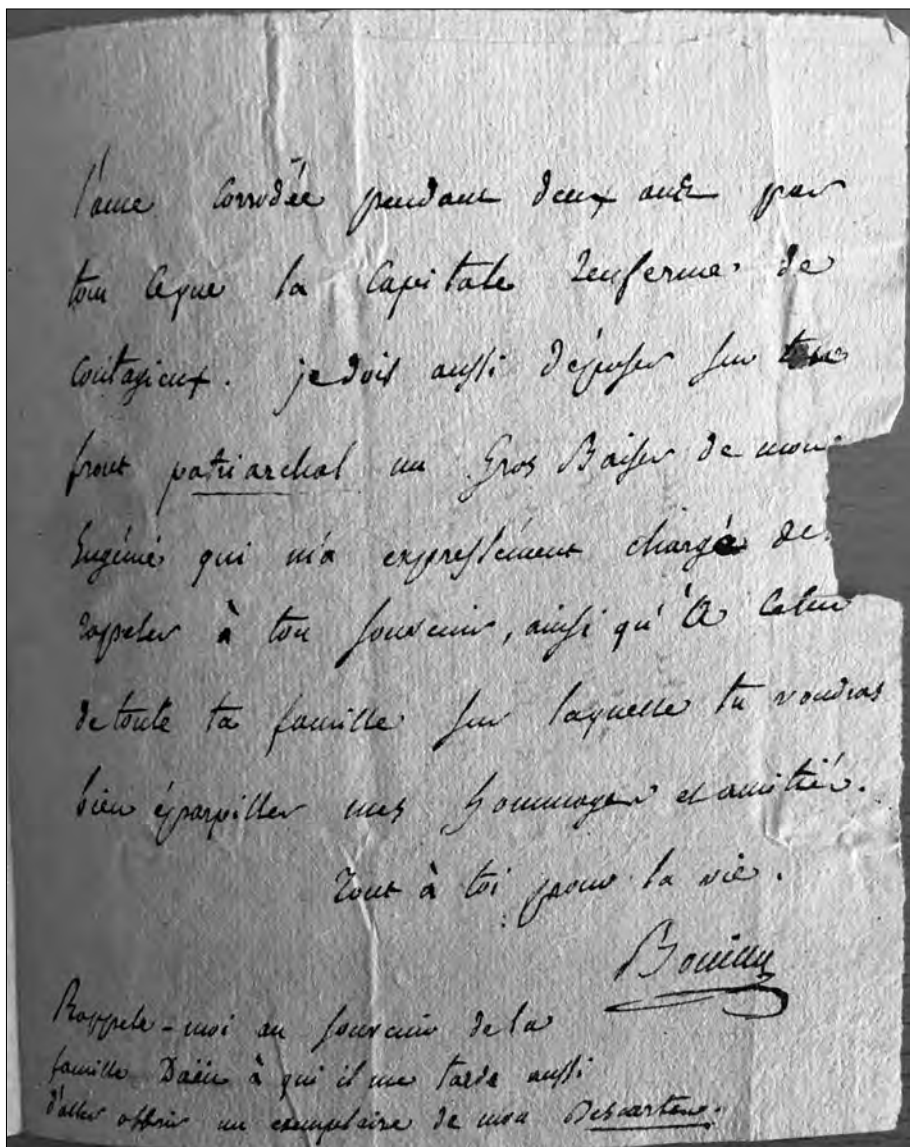 l'ame Corrodée pendant deux ans par
tout ceque la Capitale renferme de
contagieux. je dois aussi déposer sur ton
front patriarchal un Gros Baiser de mon
Eugénie qui m'a expressément chargé de
rappeler à ton souvenir, ainsi qu'à Celui
de toute ta famille sur laquelle tu voudras
bien éparpiller mes hommages et amitiés.
Tout à toi pour la vie.
Bouilly
Rappele-moi au souvenir de la
famille à qui il me tarde aussi
d'aller offrir un exemplaire de mon Descartes.